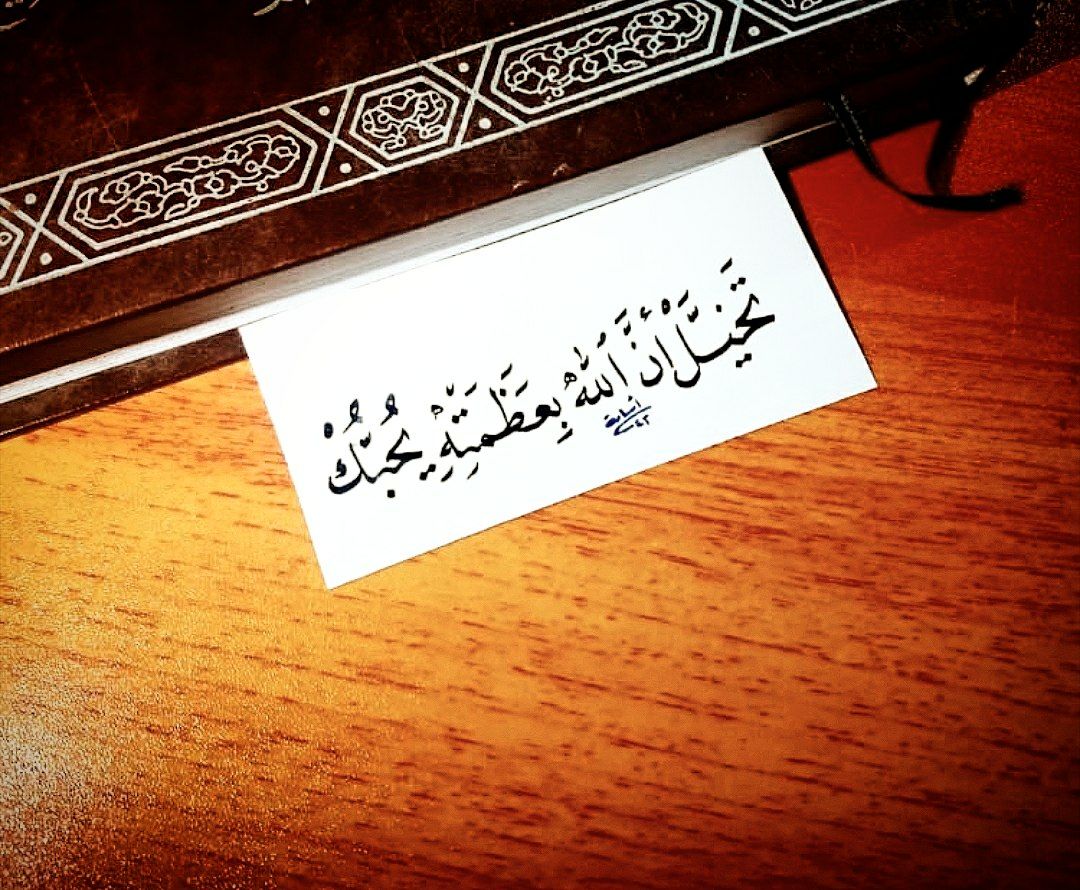 تَخَيَّلْ أَنَّ ٱللَّهَ بِعَظَمَتِهِ يُحِبُّكْ